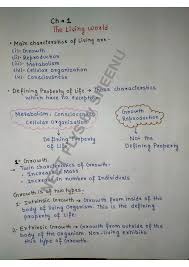 Ch # 1
The Living world
• Main characteristics of Living are-
(i) Growth
(ii) Reproduction
(iii) Metabolism
(iv) Cellular Organization
(v) Consciousness
• Defining Property of Life → Those characteristics
which have No Exception
Metabolism, Consciousness
Cellular Organization
Growth
Reproduction
Defining Property
of Life
Not the
Defining Property
1* Growth
• Twin characteristics of Growth
→ Increase in mass
→ Increase in number of Individuals
Growth is of two types:
1. Intrinsic Growth → Growth from inside of
the body of living Organism. This is the defining
property of Life.
2. Extrinsic Growth → Growth from outside of
the body of Organism. Non-Living exhibits
this type of Growth.